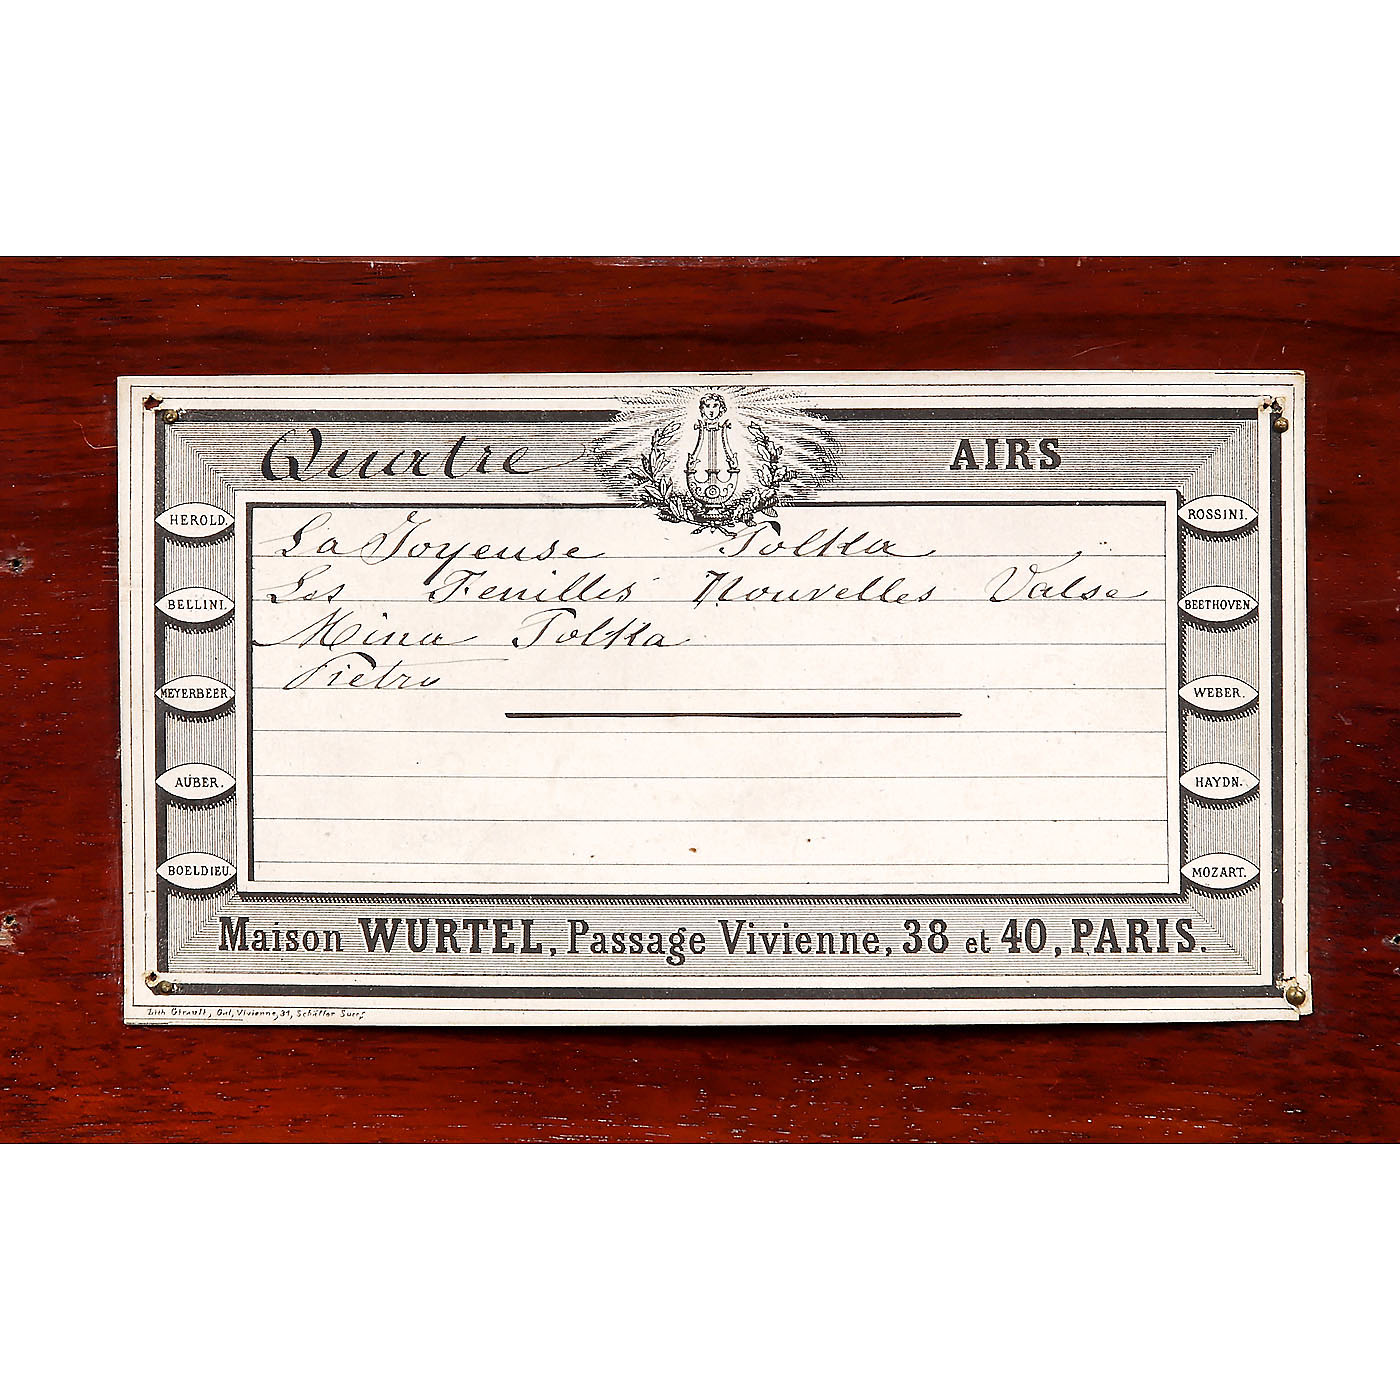 Quatre AIRS
La Joyeuse Polka
Les Feuilles Nouvelles Valse
Mina Polka
Pietro
HEROLD.
BELLINI.
MEYERBEER
AUBER.
BOELDIEU
ROSSINI.
BEETHOVEN
WEBER.
HAYDN.
MOZART.
Maison WURTEL, Passage Vivienne, 38 et 40, PARIS.
Lith Girault, Gal, Vivienne, 31, Schäffer Succr